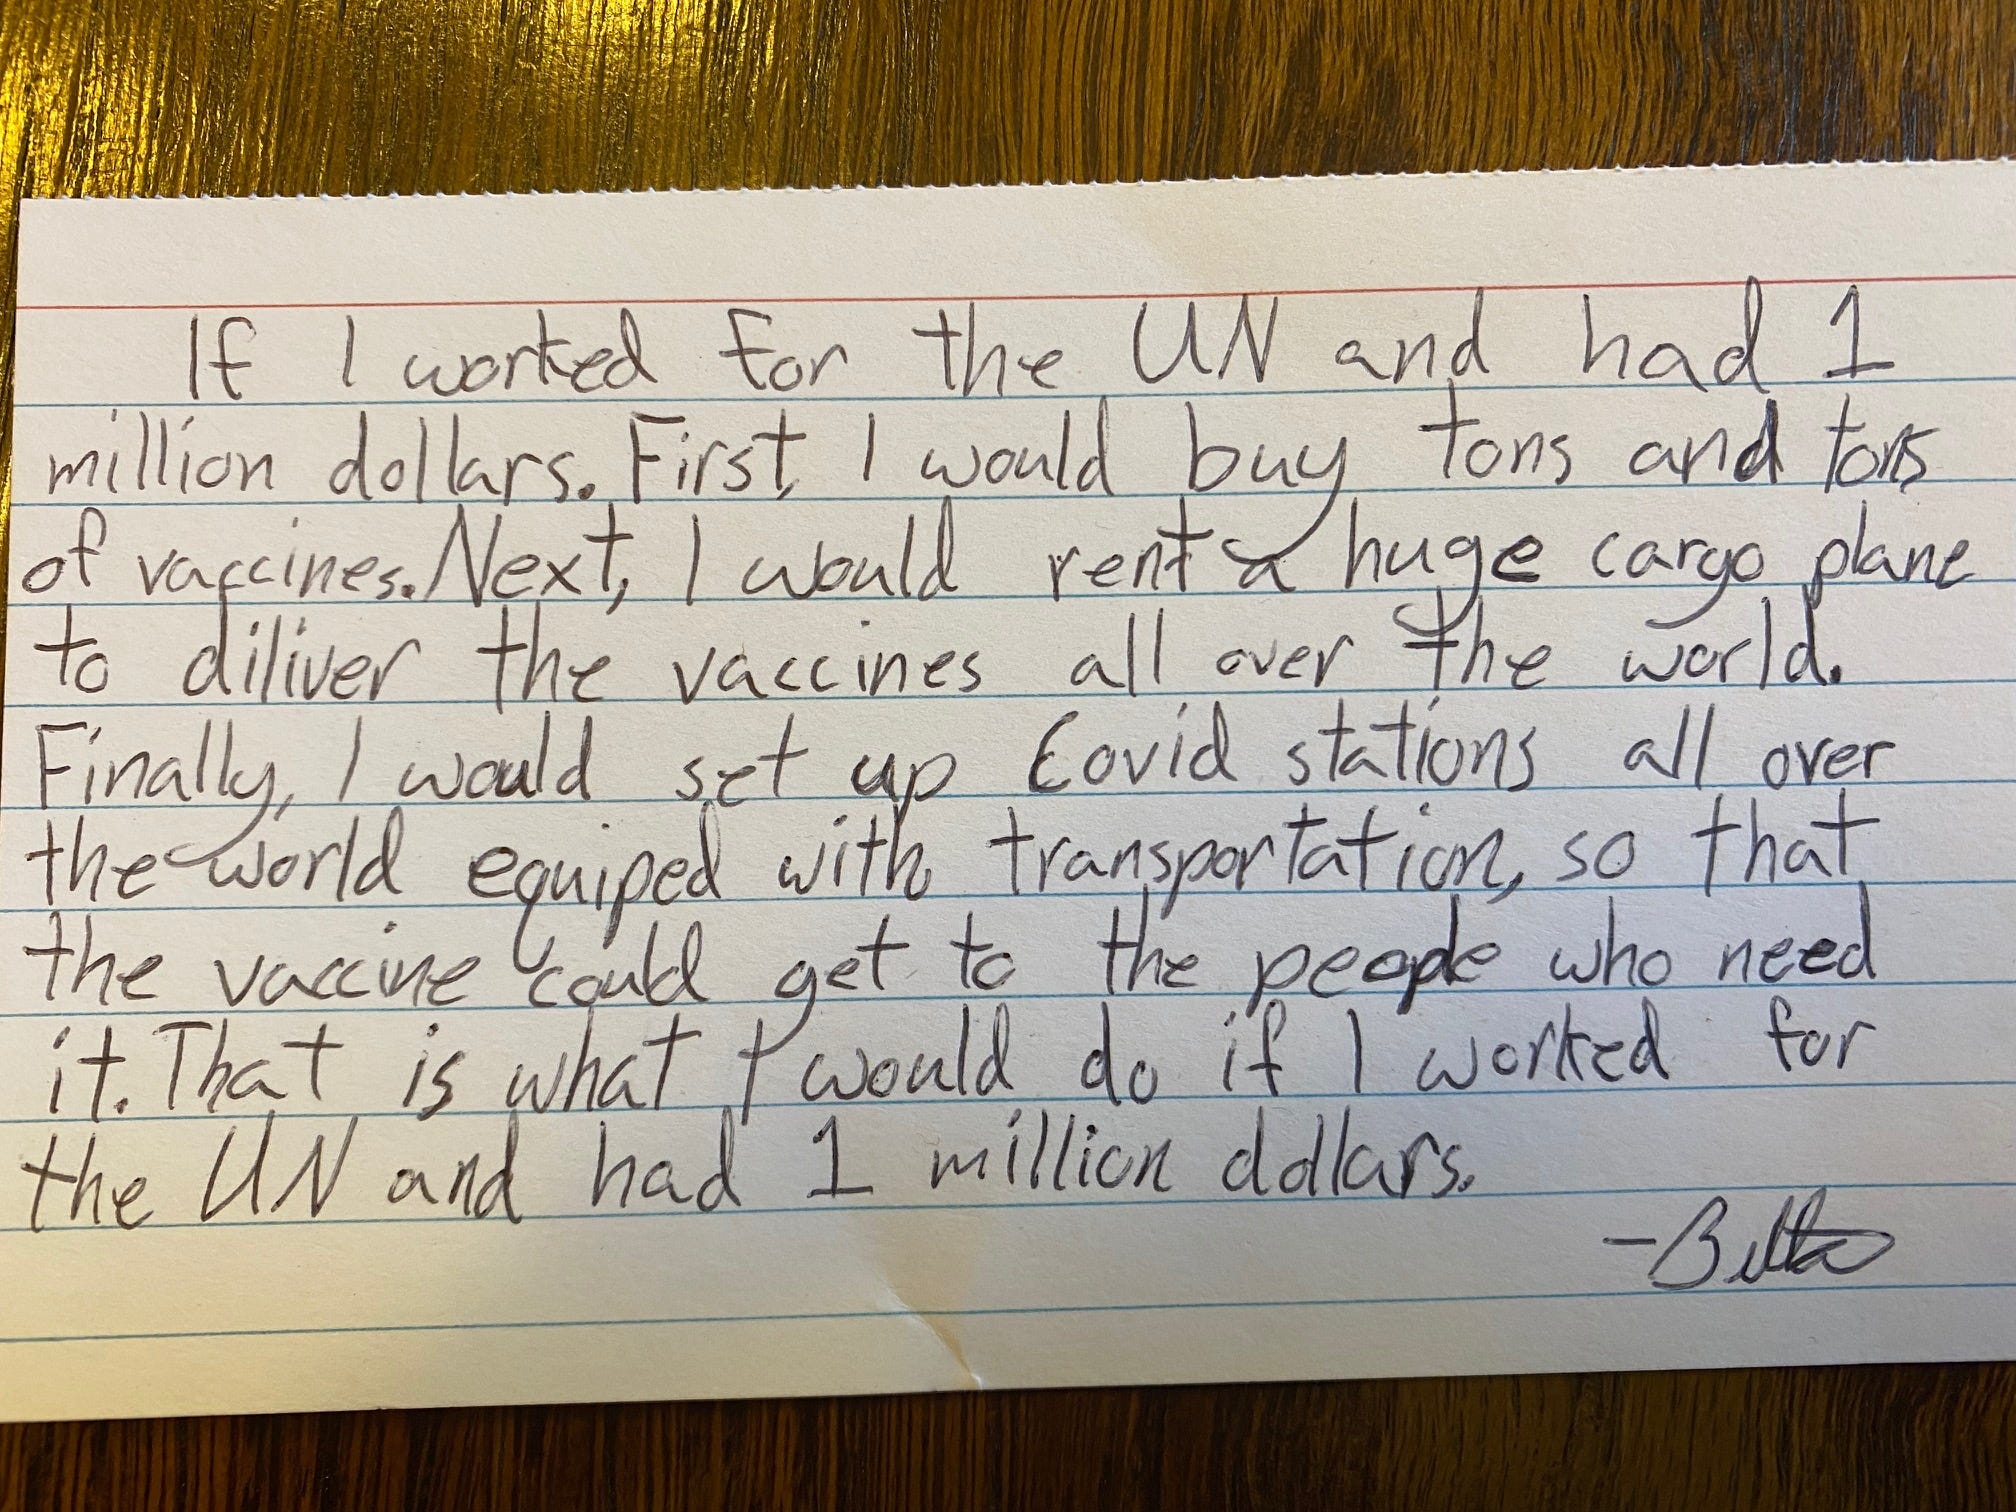 If I worked for the UN and had 1
million dollars. First, I would buy tons and tons
of vaccines. Next, I would rent a huge cargo plane
to diliver the vaccines all over the world.
Finally, I would set up Covid stations all over
the world equiped with transportation, so that
the vaccine could get to the people who need
it. That is what I would do if I worked for
the UN and had 1 million dollars.